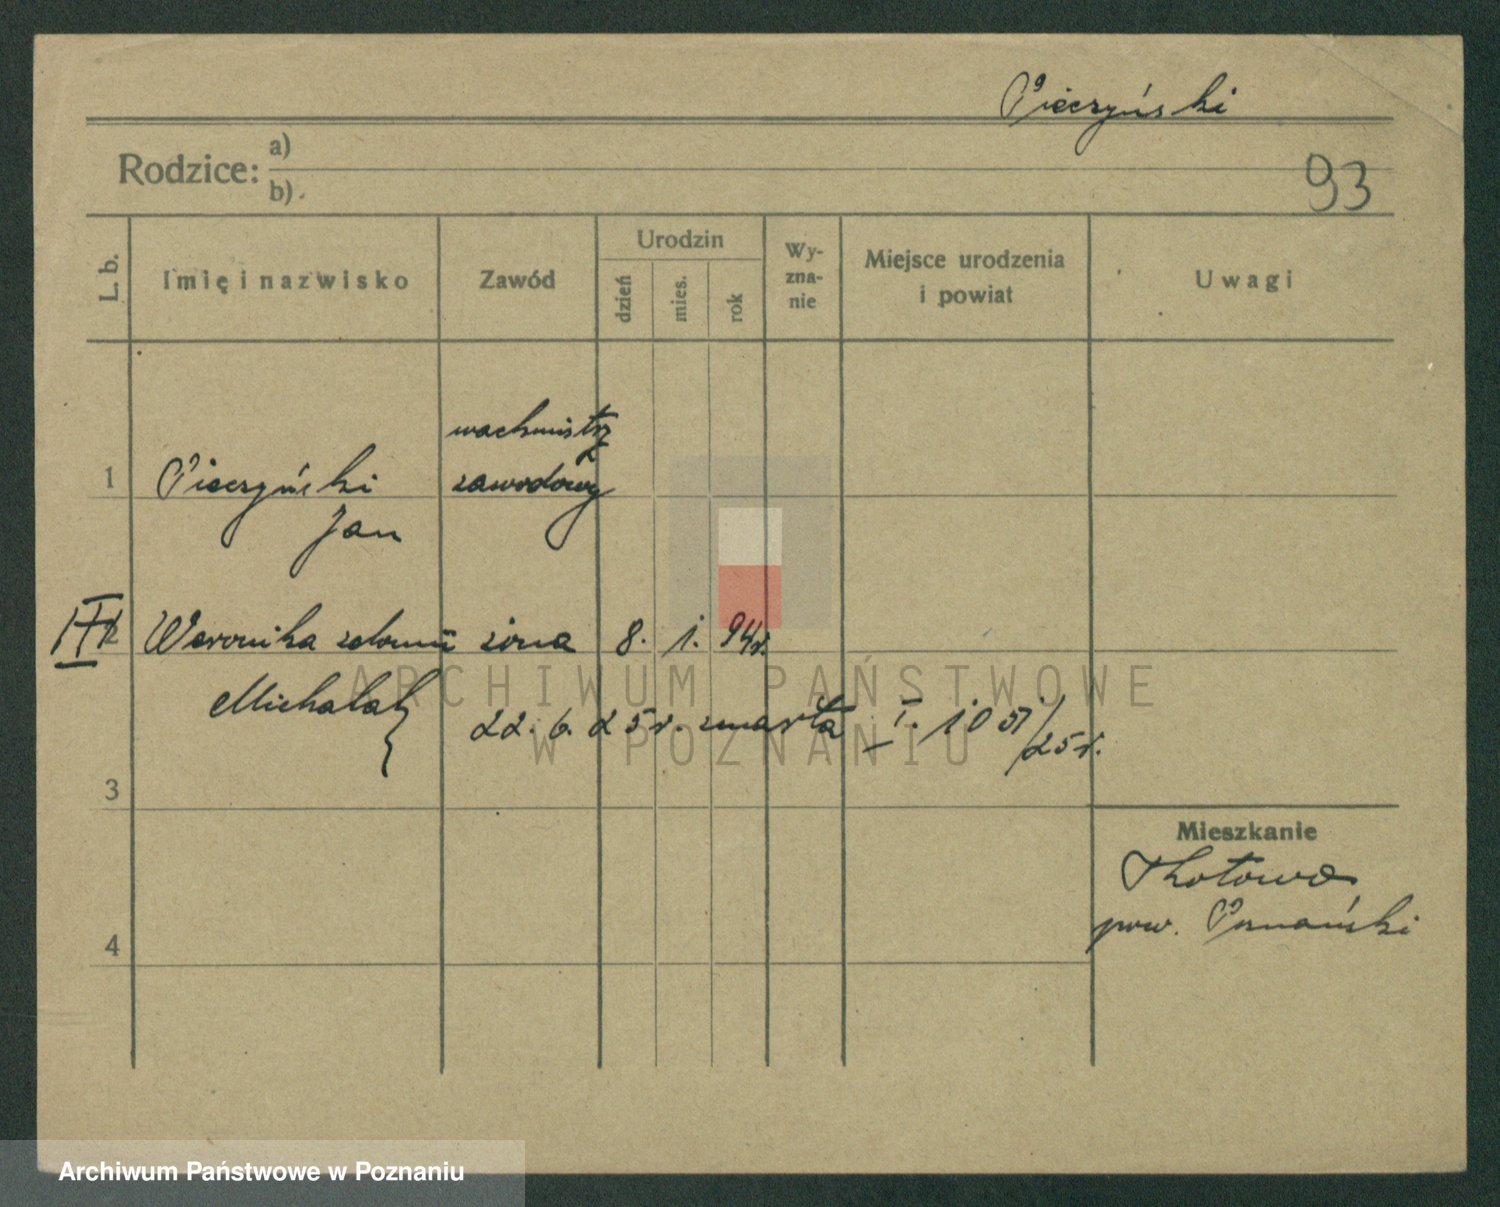 Pieczyński
Rodzice: a)
b)
93
L. b.
Imię i nazwisko
Zawód
Urodzin
dzień
mies.
rok
Wy-
zna-
nie
Miejsce urodzenia
i powiat
Uwagi
wachmistrz
1 Pieczyński zawodowy
Jan
III
2 Weronika żona 8. 1. 94r.
Michalak
22. 6. 25r. zmarła I. 1051/25r.
3
Mieszkanie
Kotowo
pow. Poznański
4
ARCHIWUM PAŃSTWOWE
W POZNANIU
Archiwum Państwowe w Poznaniu